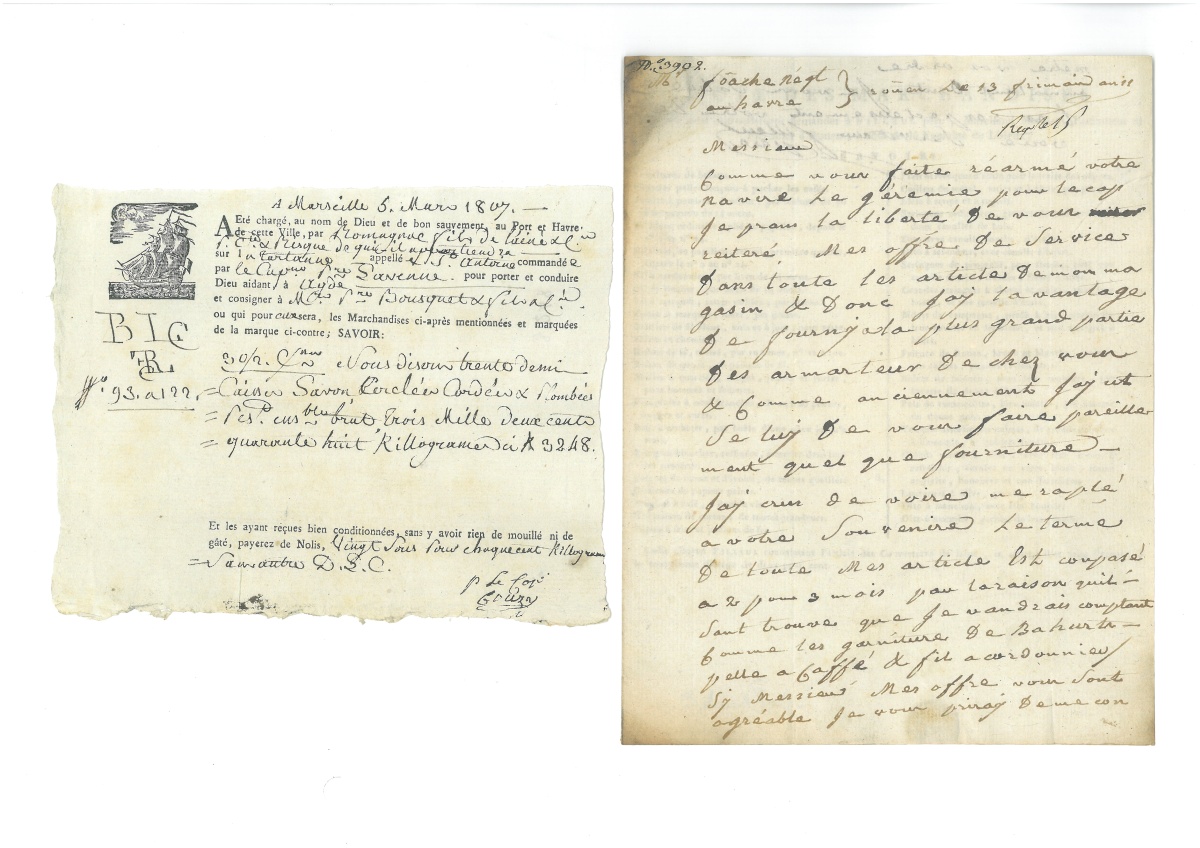 A Marseille 5. Mars 1807.
A Eté chargé, au nom de Dieu et de bon sauvement, au Port et Havre
de cette Ville, par Romagnac fils de l'aîné & Cie
p. Cte & Risque de qui il appartiendra
sur La Tartanne appellé St. Antoine commandé e
par le Capne Pre Lavenne. pour porter et conduire
Dieu aidant, à Agde
et consigner à Mrs Pre Bousquet & fils
ou qui pour eux sera, les Marchandises ci-après mentionnées et marquées
de la marque ci-contre; SAVOIR:
BIC
R
No. 93. a 122.
30/2. Csses Nous disons trente demi
= Caisses Savon Cerclées Cordées & Plombées
= Pest. ensble brut Trois Mille deux cents
= quarante huit Killogrames ci K 3248.
Et les ayant reçues bien conditionnées, sans y avoir rien de mouillé ni de
gâté, payerez de Nolis, Vingt Sous pour chaque cent Killogram
= Sans autre D. L. C.
p. Le Cape
No. 3902.
Mr foache négt
au havre } roüen Le 13 frimair an 11
Messieurs
Comme vous faite réarmé votre
navire Le gérémie pour le cap
Je prans la liberté De vous
reiteré, Mes offre De Service
Dans toute les article De mon ma
gasin & Donc Jay la vantage
De fournj a la plus grand partie
Des armarteur De chez vous
& Comme anciennement Jay ut
Se luy De vous faire pareille
ment quel que fourniture —
Jay crus de voire me raplé
a votre Souvenire Le terme
De toute Mes article Est compasé
a 2 pour 3 mois par la raison quil —
Sant trouve que Je vandrais comptant
Comme les garniture De Bahurts —
pelle a Caffé & fil a cordonnies
Sy Messieurs Mes offre vous Sont
agréable Je vous priraÿ De me con